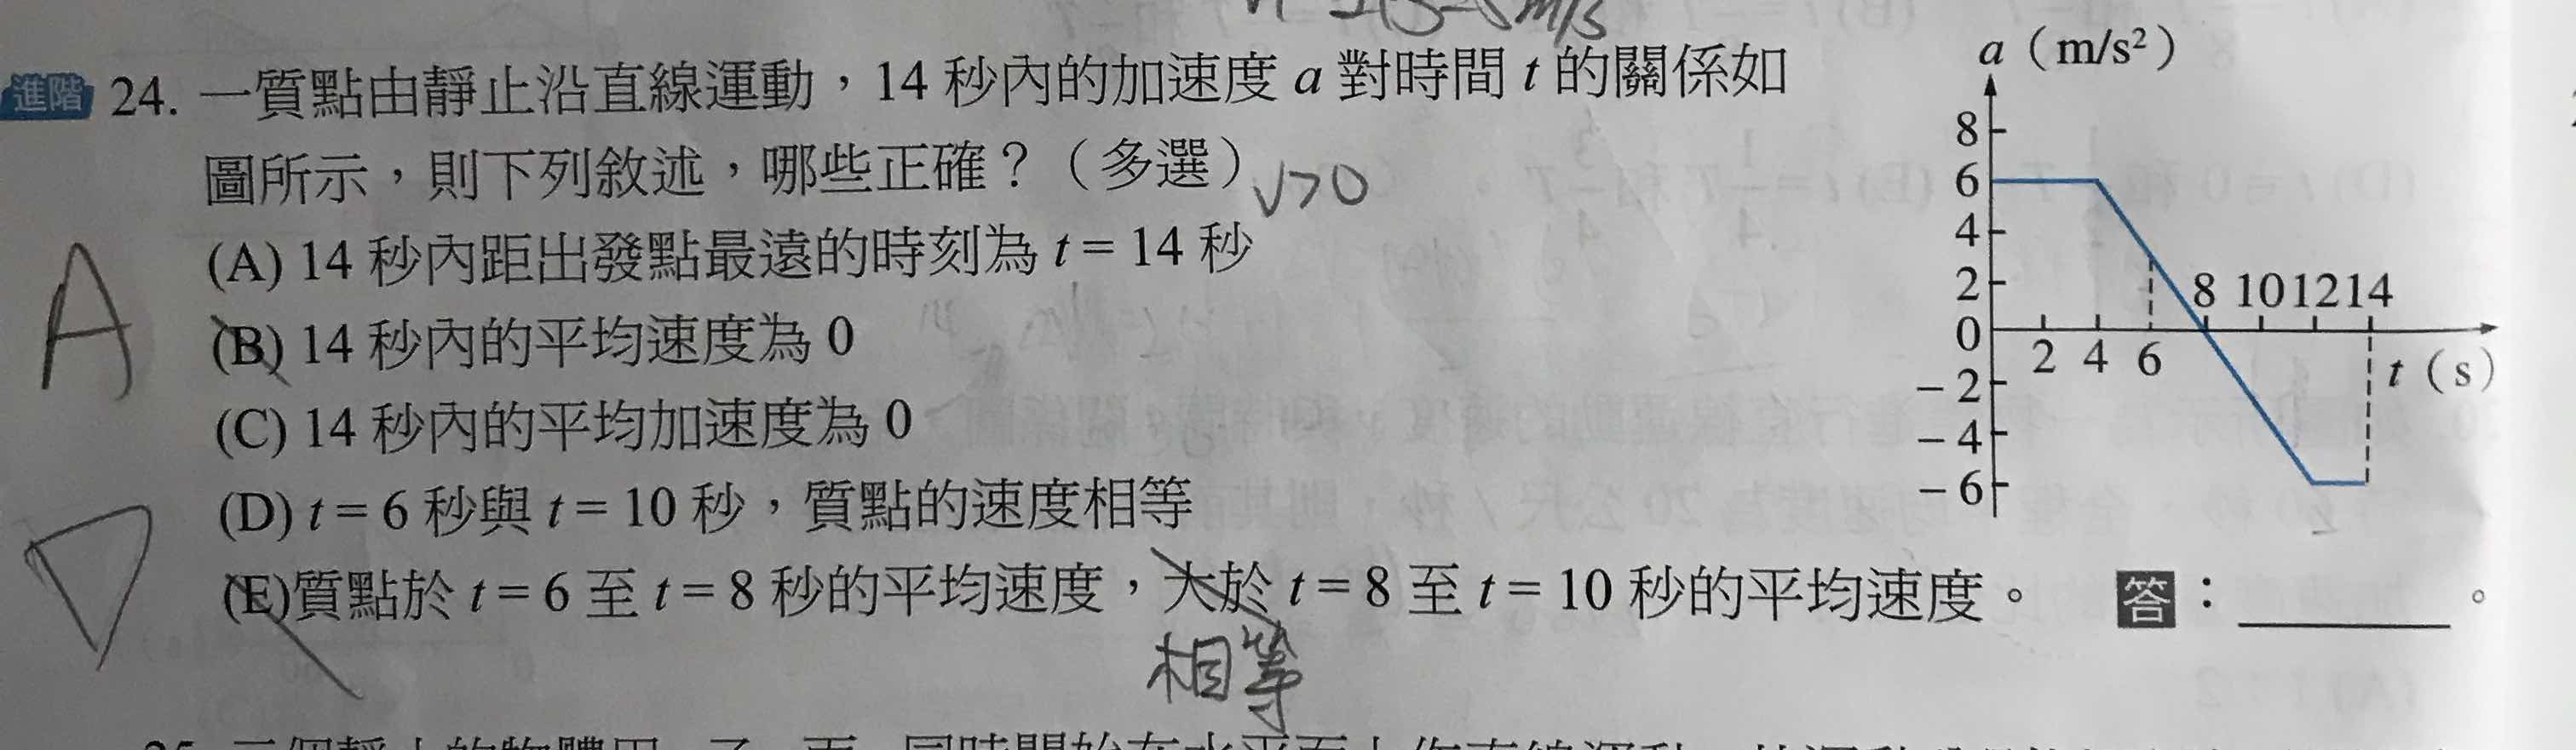 進階 24. 一質點由靜止沿直線運動，14 秒內的加速度 a 對時間 t 的關係如
圖所示，則下列敘述，哪些正確？（多選）
V>0
(A) 14 秒內距出發點最遠的時刻為 t = 14 秒
(B) 14 秒內的平均速度為 0
(C) 14 秒內的平均加速度為 0
(D) t = 6 秒與 t = 10 秒，質點的速度相等
(E)質點於 t = 6 至 t = 8 秒的平均速度，大於 t = 8 至 t = 10 秒的平均速度。 答：＿＿＿。
相等
A
a（m/s²）
8
6
4
2
0
－2
－4
－6
2 4 6
8 10 12 14
t（s）